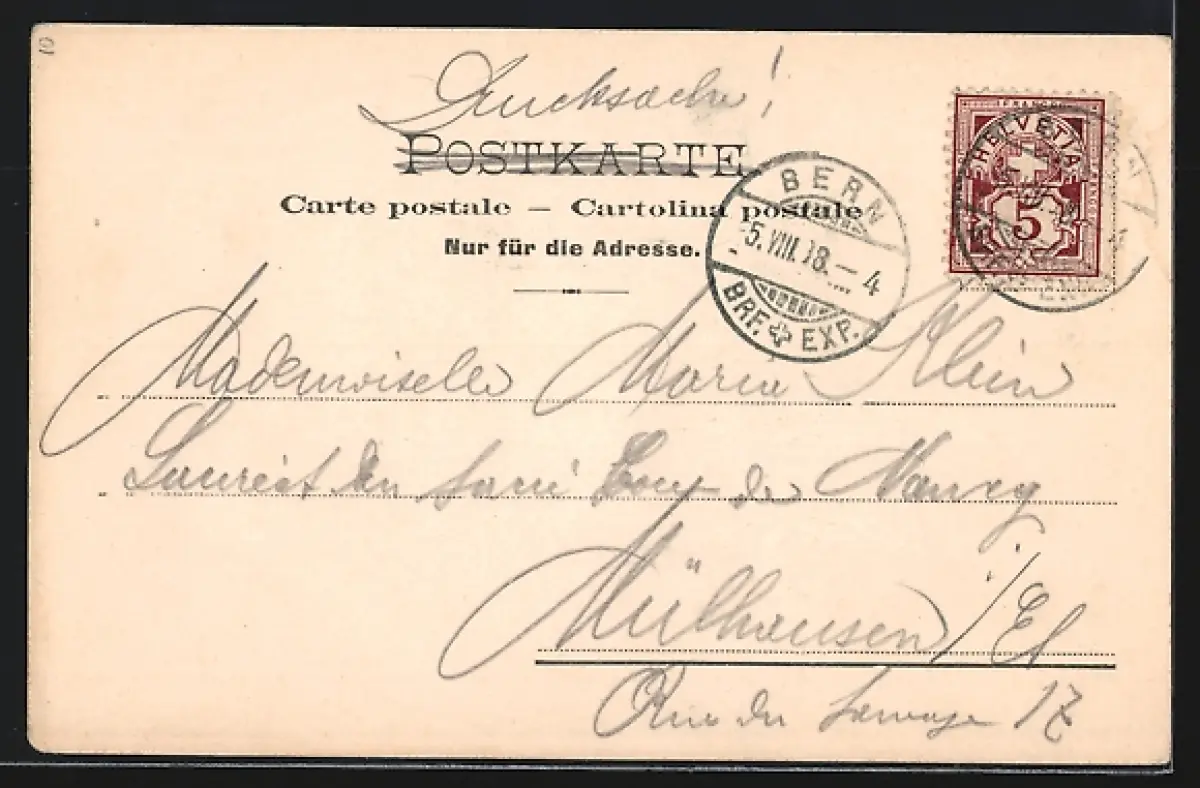 Drucksache!
POSTKARTE
Carte postale – Cartolina postale
Nur für die Adresse.
HELVETIA
5
BERN
5.VIII.98.–4
BRF. EXP.
Mademoiselle Marie Klein
de Nancy
Mülhausen i/Els
Rue du 17